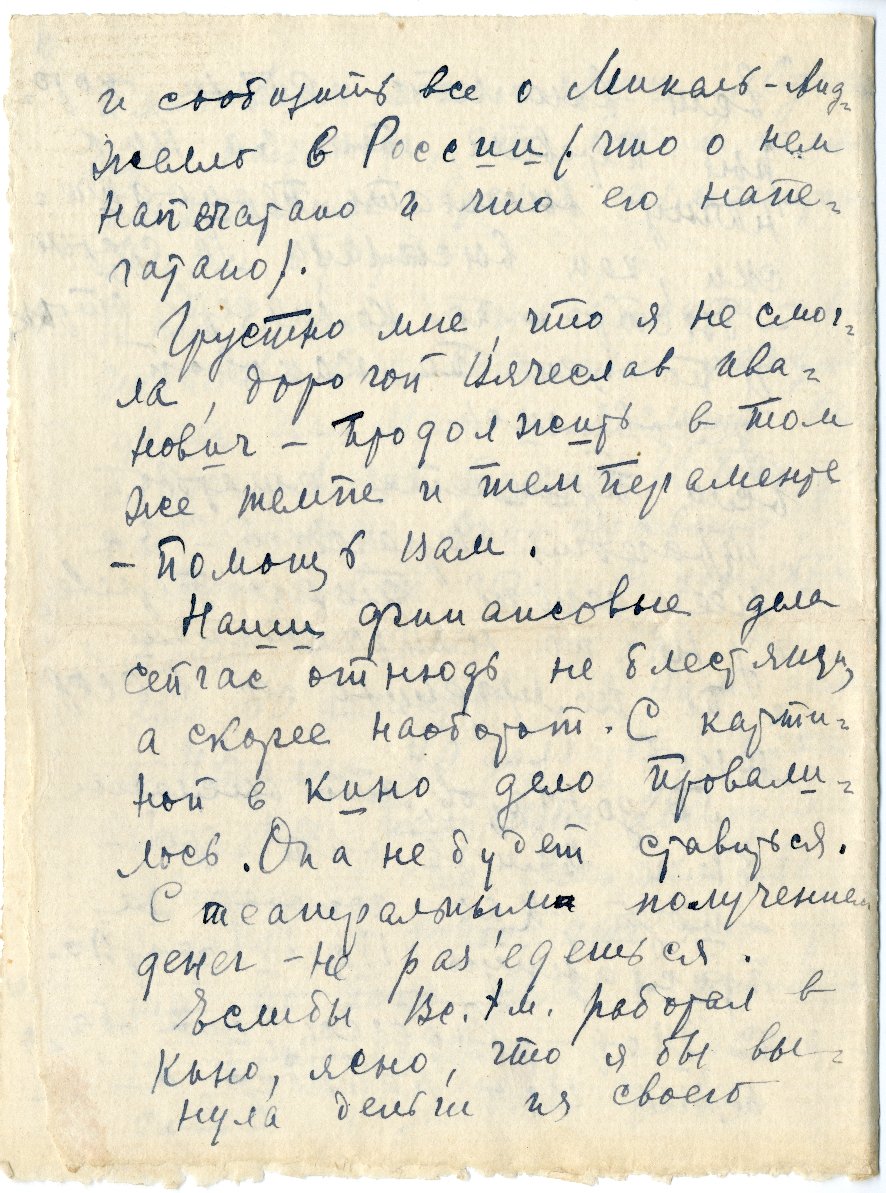 и сообщить все о Микель-Анд-
жело в России (что о нем
напечатано и что его напе-
чатано).
Грустно мне, что я не смог-
ла, дорогой Вячеслав Ива-
нович – продолжить в том
же темпе и темпераменте
– помощь Вам.
Наши финансовые дела
сейчас отнюдь не блестящи,
а скорее наоборот. С карти-
ной в кино дело провали-
лось. Она не будет ставиться.
С театральным получением
денег – не раз'едешься.
Еслибы Вс. Эм. работал в
Кино, ясно, что я бы вы-
нула деньги из своего